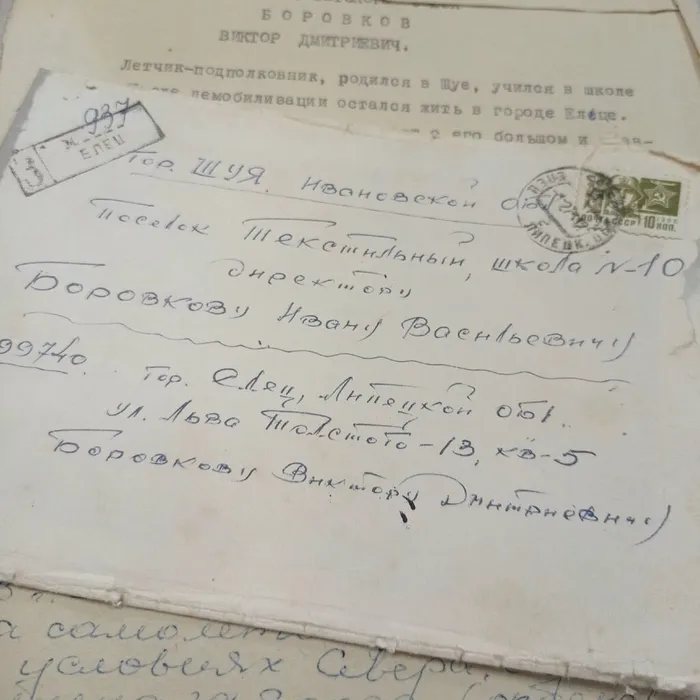 БОРОВКОВ
ВИКТОР ДМИТРИЕВИЧ.
Летчик-подполковник, родился в Шуе, учился в школе
демобилизации остался жить в городе Ельце.
с его большом и
№ 937
ЕЛЕЦ
Гор. ШУЯ. Ивановской обл
Поселок Текстильный, школа N-10
директору
Боровкову Ивану Васильевичу
399740. гор. Елец, Липецкой обл.
ул. Льва Толстого-13, кв-5
Боровкову Виктору Дмитриевичу
ПОЧТА СССР 10 коп.
ЕЛЕЦ
ЛИПЕЦК. ОБЛ.
а самолёте
условиях Севера.